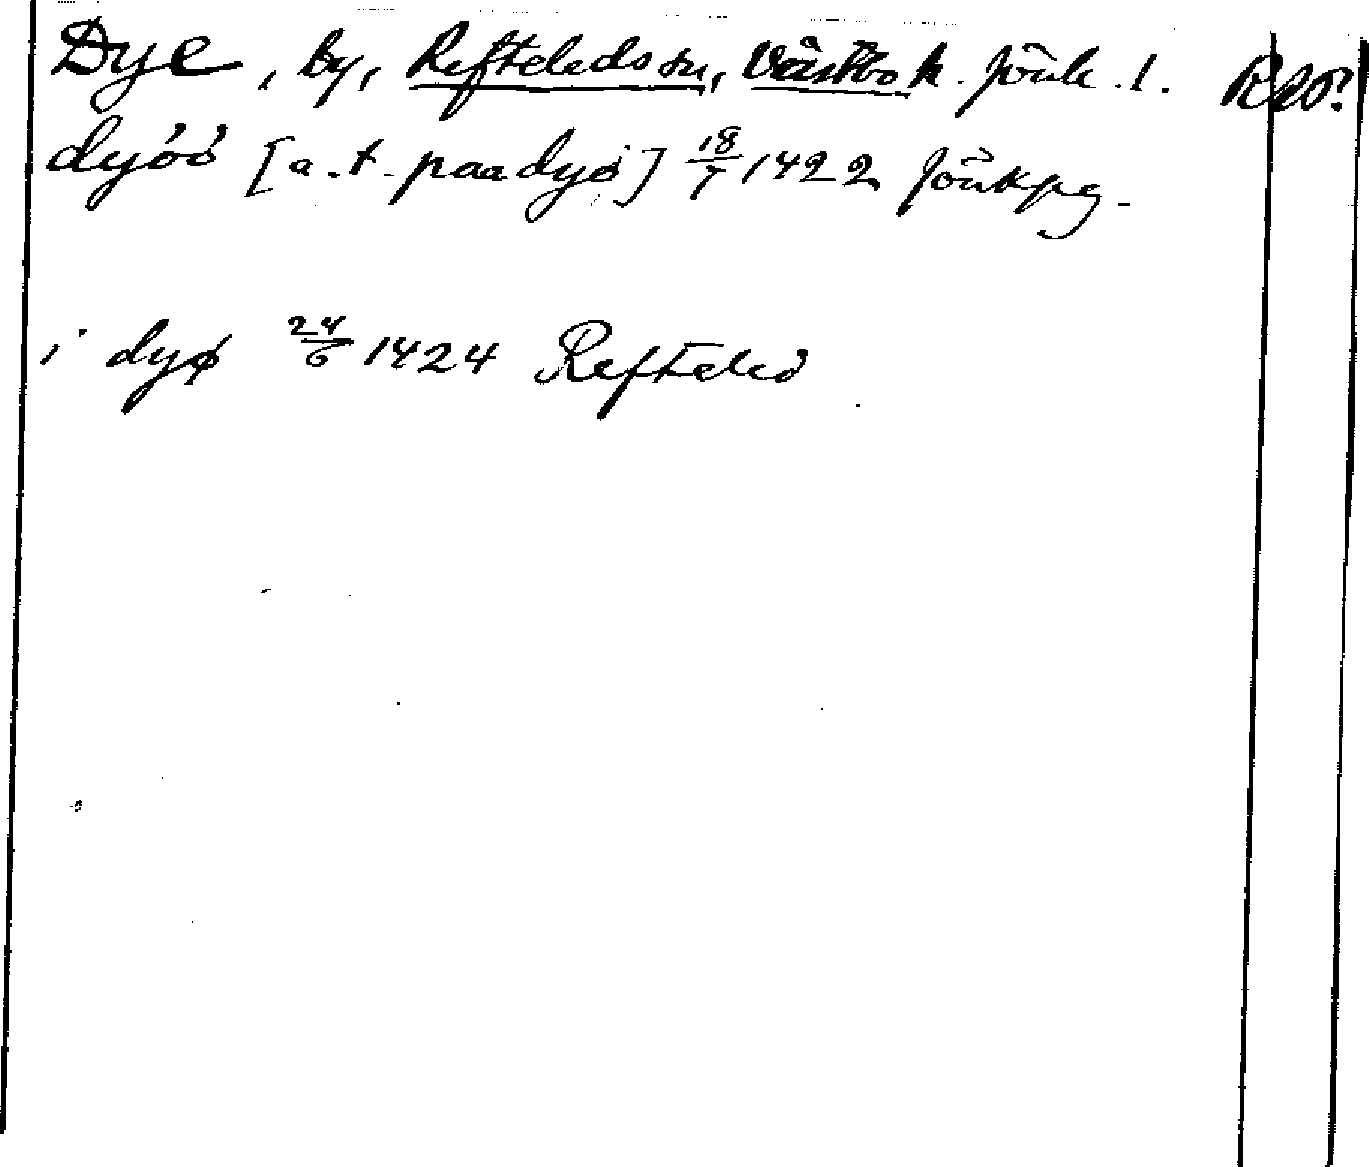 Dye, by, Refteleds sn, Västbo h. Jönk. l.
dyóó [a. t. paa dyó] 18/7 1422 Jönkpg.
i dyø 24/6 1424 Refteled